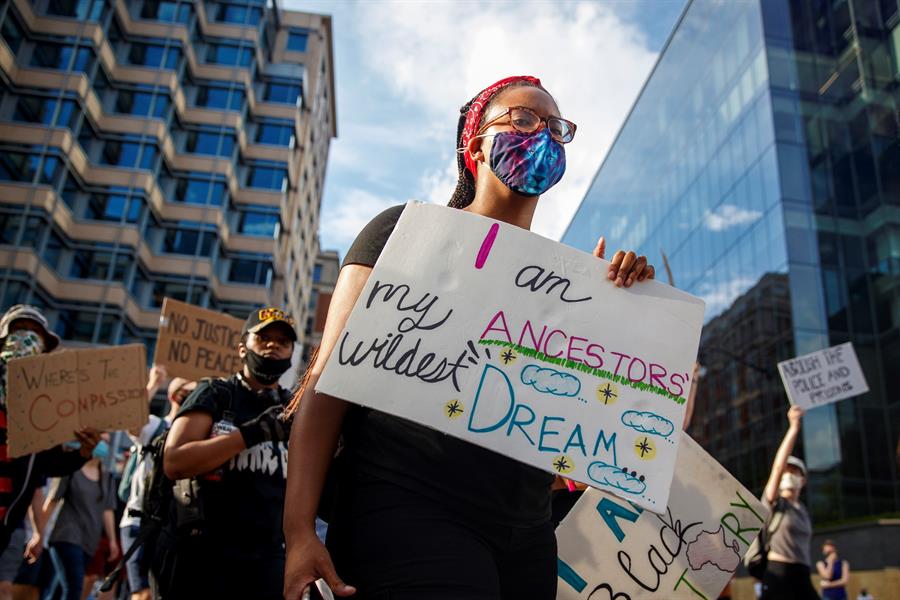 I am
my ANCESTORS'
wildest DREAM
WHERE'S THE
COMPASSION
NO JUSTICE
NO PEACE
ABOLISH THE
POLICE AND
PRISONS
I AM
Black
TORY